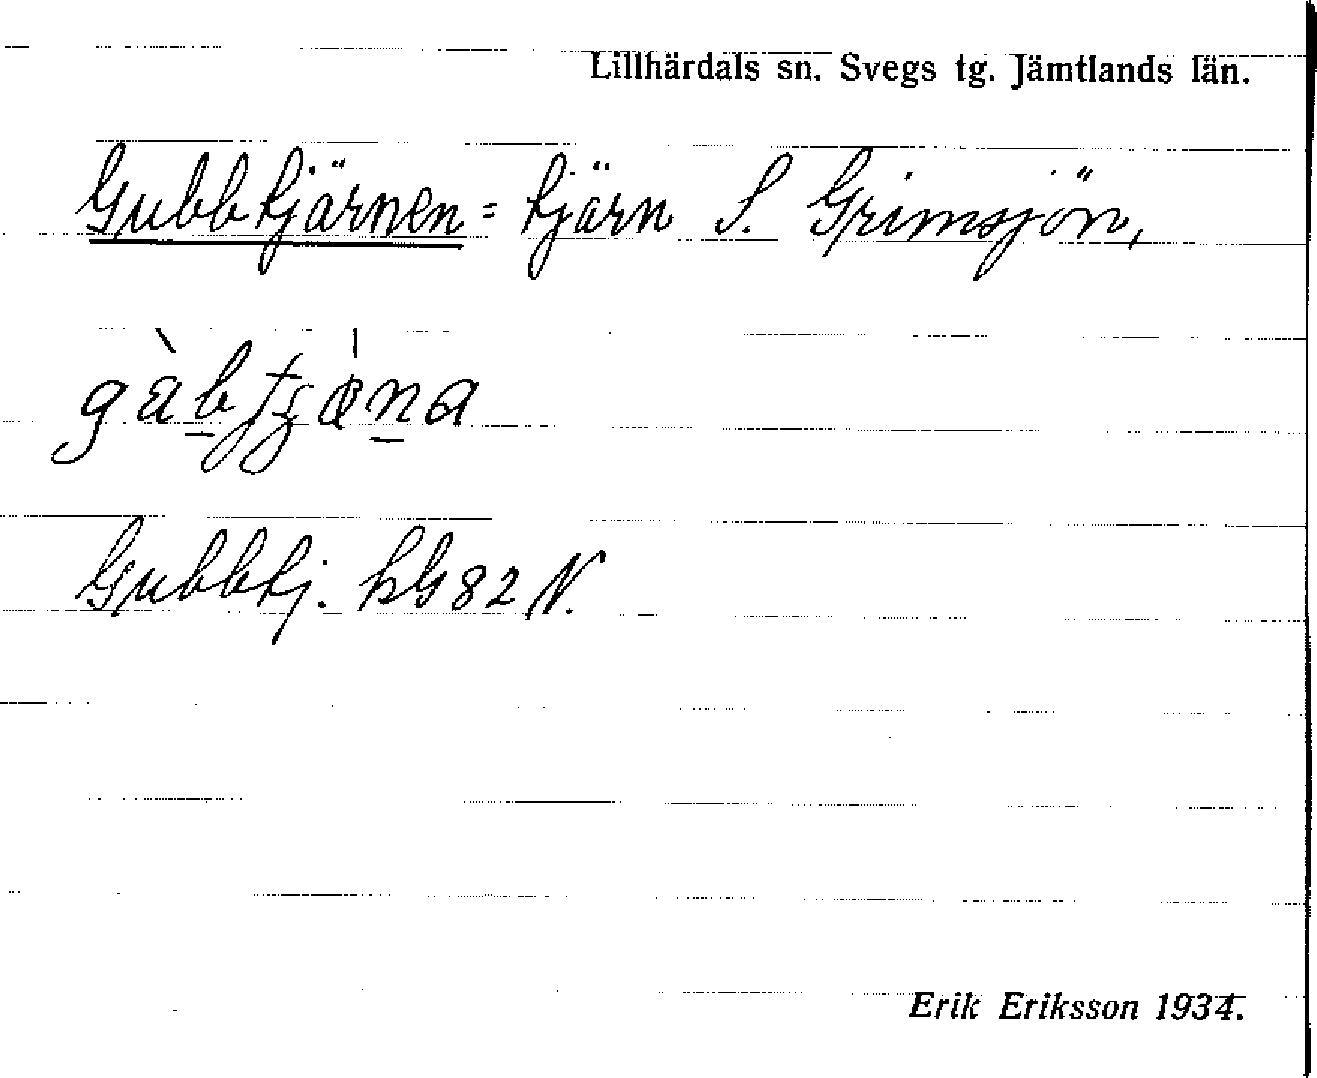 Lillhärdals sn. Svegs tg. Jämtlands län.
Gubbtjärnen = tjärn S. Grimsjön,
Gubbtj. kbl 82 N.
Erik Eriksson 1934.